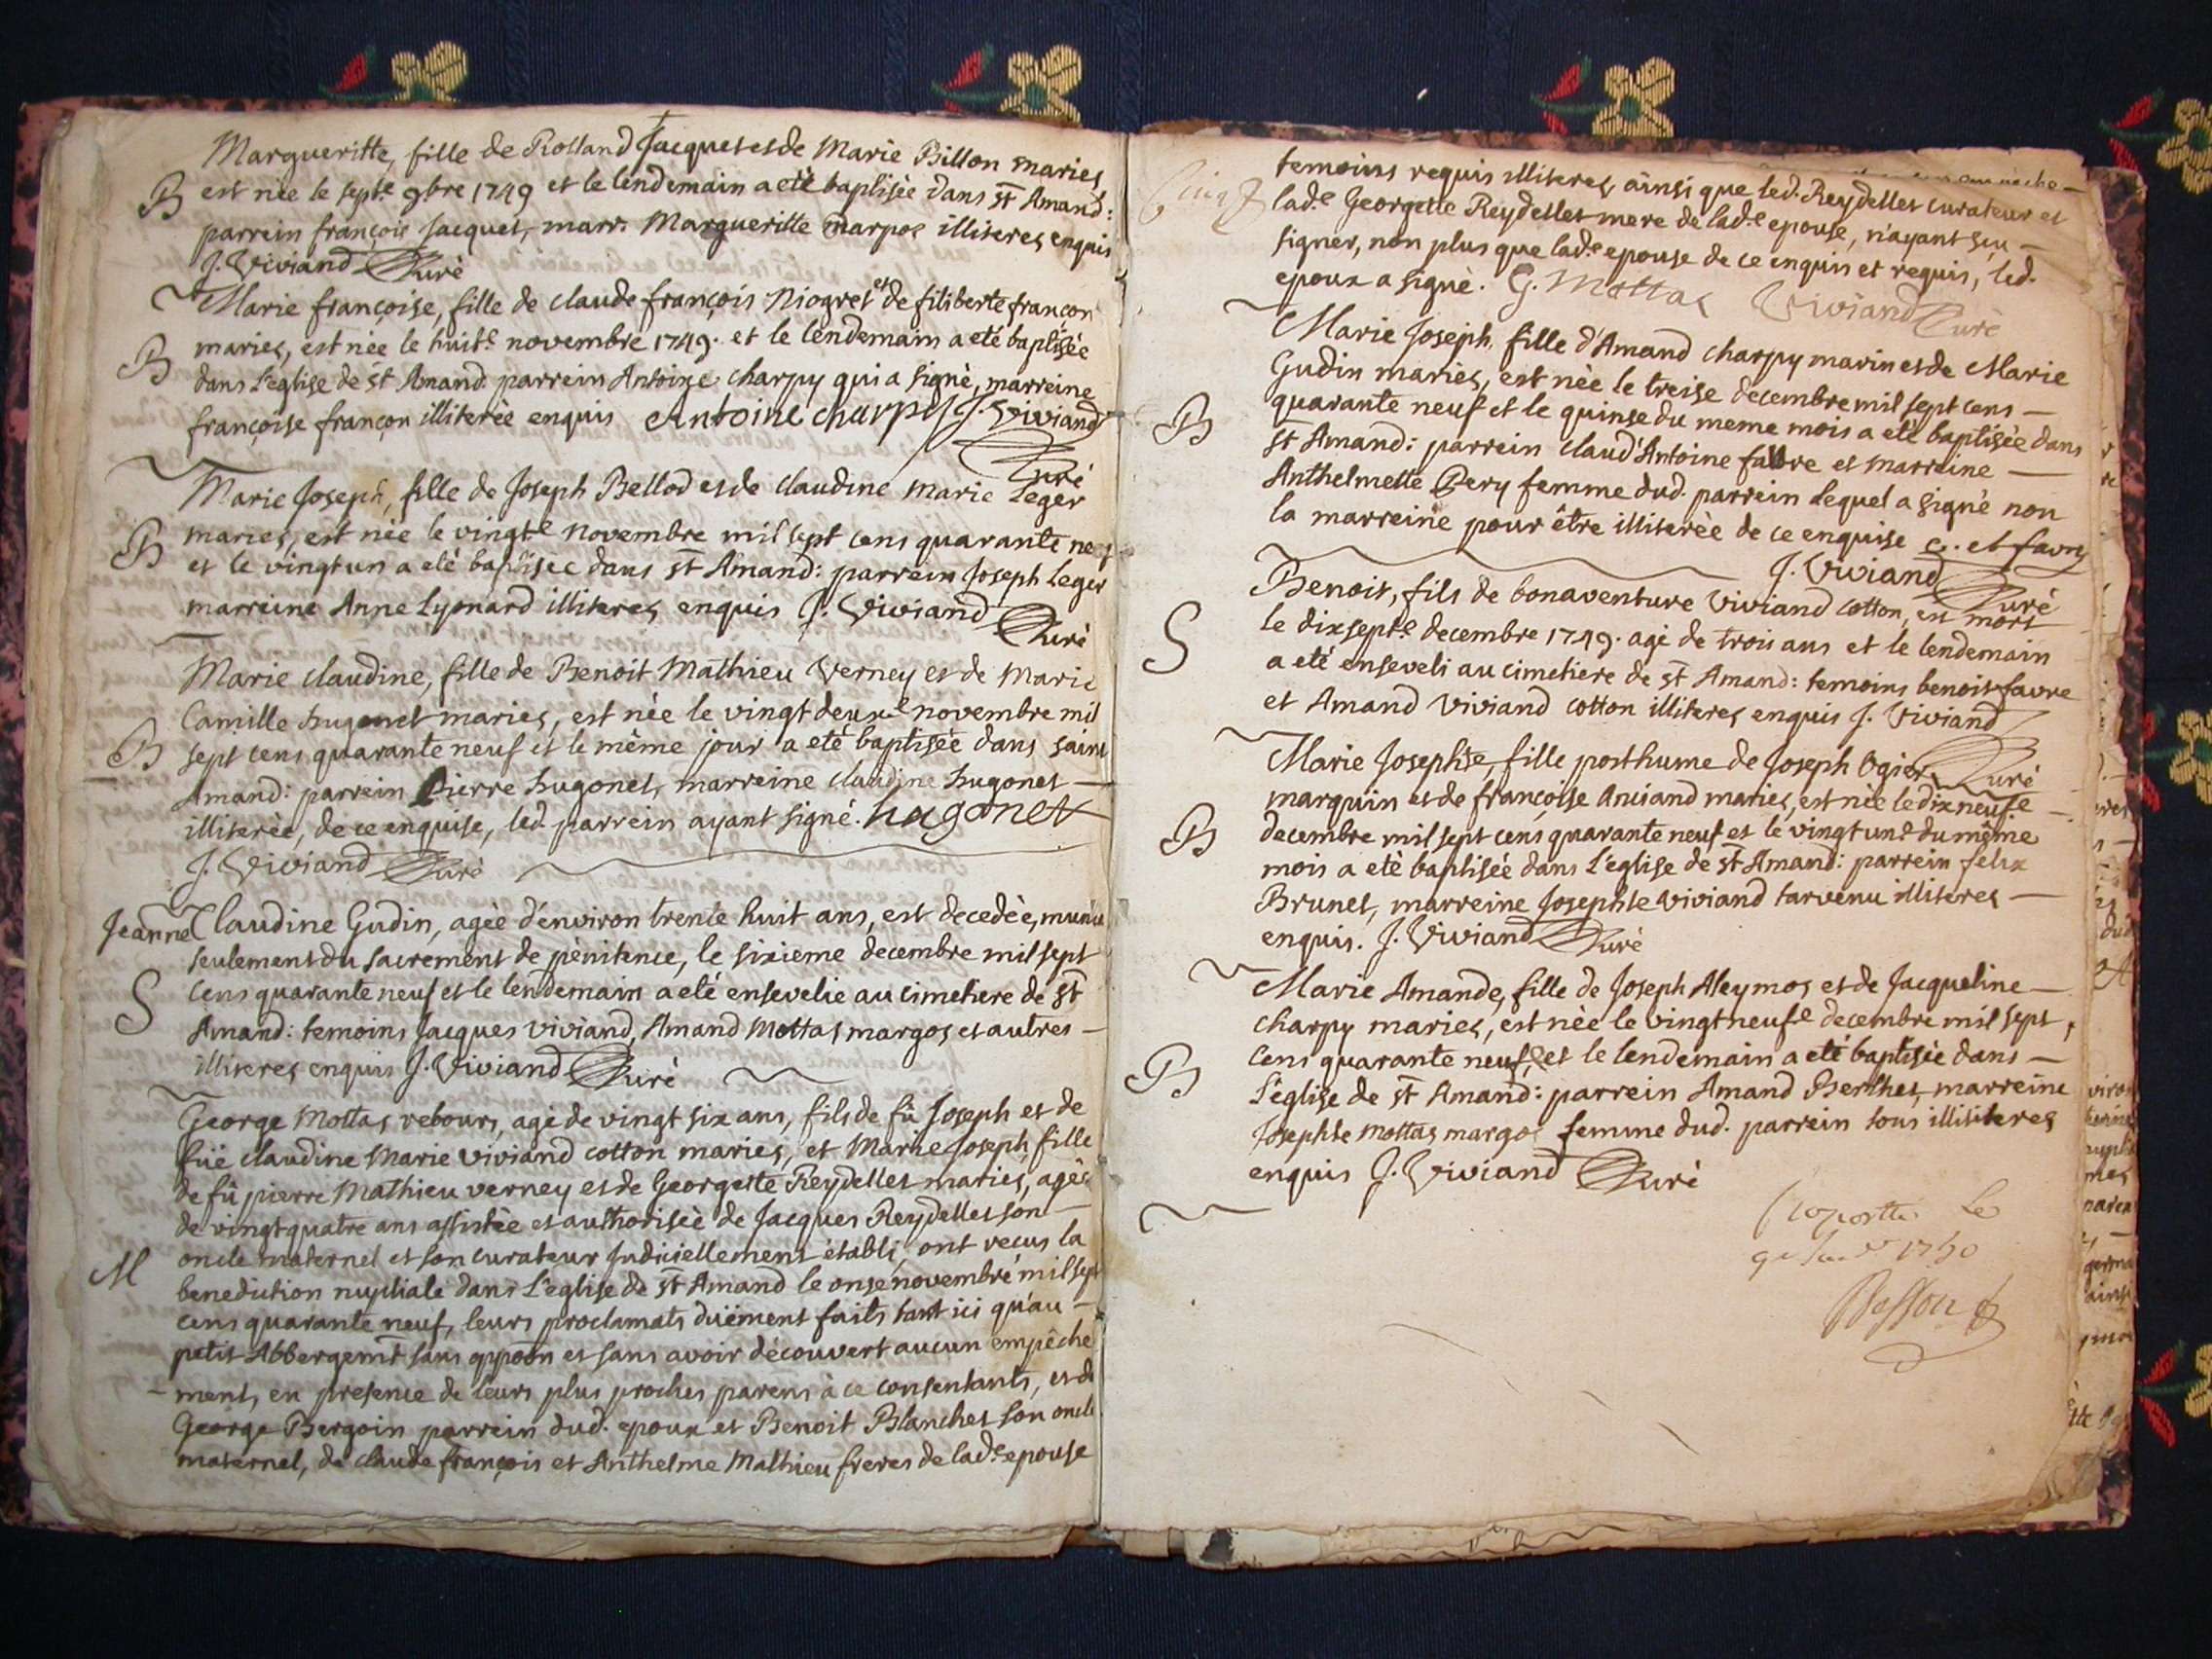 Margueritte, fille de Rolland Jacquet et de Marie Billon mariés
B est née le septe. 9bre 1749 et le lendemain a eté baptisée dans st Amand:
parrein françois Jacquet, marr. Margueritte marpos illiteres enquis
J. Viviand Curé
Marie françoise, fille de claude françois Niogret et de filiberte françon
mariés, est née le huite. novembre 1749. et le lendemain a eté baptisée
B dans l'eglise de st Amand. parrein Antoine charpy qui a signé, marreine
françoise françon illiterée enquis Antoine charpy J. Viviand
Curé
Marie Joseph, fille de Joseph Bellod et de claudine Marie Leger
B mariés, est née le vingte novembre mil sept cens quarante neuf
et le vingt un a eté baptisée dans st Amand: parrein Joseph Leger
marreine Anne Lyonard illiteres enquis J. Viviand
Curé
Marie claudine, fille de Benoit Mathieu Verney et de Marie
Camille hugonet mariés, est née le vingt deuxe novembre mil
B sept cens quarante neuf et le même jour a eté baptisée dans saint
Amand: parrein Pierre hugonet, marreine claudine hugonet
illiterée, de ce enquise, led. parrein ayant signé. hugonet
J. Viviand Curé
Jeanne Claudine Gudin, agée d'environ trente huit ans, est decedée, munie
seulement du sacrement de pénitence, le sixieme decembre mil sept
S cens quarante neuf et le lendemain a eté ensevelie au cimetiere de st
Amand: temoins Jacques Viviand, Amand Mottas margos et autres
illiteres enquis J. Viviand Curé
George Mottas rebours, agé de vingt six ans, fils de fû Joseph et de
fuë claudine Marie viviand cotton mariés, et Marie Joseph fille
de fû pierre Mathieu verney et de Georgette Reydellet mariés, agée
de vingt quatre ans assistée et authorisée de Jacques Reydellet son
oncle maternel et son curateur Judiciellement établi, ont recus la
M benediction nuptiale dans l'eglise de st Amand le onse novembre mil sept
cens quarante neuf, leurs proclamats duëment faits tant ici qu'au
petit Abbergemt sans oppoon et sans avoir découvert aucun empêche
ment, en presence de leurs plus proches parens à ce consentants, et de
George Bergoin parrein dud. epoux et Benoit Blanchet son oncle
maternel, de claude françois et Anthelme Mathieu freres de lade. epouse
temoins requis illiteres, ainsi que led. Reydellet curateur et
lade. Georgette Reydellet mere de lade. epouse, n'ayant sçu
signer, non plus que lade. epouse de ce enquis et requis, led.
epoux a signé. G. Mottas Viviand Curé
Marie Joseph, fille d'Amand charpy marin et de Marie
Gudin mariés, est née le treise decembre mil sept cens
quarante neuf et le quinse du meme mois a eté baptisée dans
B st Amand: parrein claud'Antoine favre et marreine
Anthelmette Pery femme dud. parrein lequel a signé non
la marreine pour être illiterée de ce enquise c. et favre
J. Viviand Curé
Benoit, fils de bonaventure Viviand cotton, est mort
le dix septe. decembre 1749. agé de trois ans et le lendemain
S a eté enseveli au cimetiere de st Amand: temoins benoit favre
et Amand Viviand cotton illiteres enquis J. Viviand
Curé
Marie Josephte, fille posthume de Joseph Ogier
marquin et de françoise Anciand mariés, est née le dix neufe
B decembre mil sept cens quarante neuf et le vingt une du même
mois a eté baptisée dans l'eglise de st Amand: parrein felix
Brunet, marreine Josephte Viviand tarvenu illiteres
enquis. J. Viviand Curé
Marie Amande, fille de Joseph Aleymos et de Jacqueline
charpy mariés, est née le vingt neufe decembre mil sept
cens quarante neuf, et le lendemain a eté baptisée dans
B l'eglise de st Amand: parrein Amand Berthet, marreine
Josephte Mottas margos femme dud. parrein tous illiteres
enquis J. Viviand Curé
1750